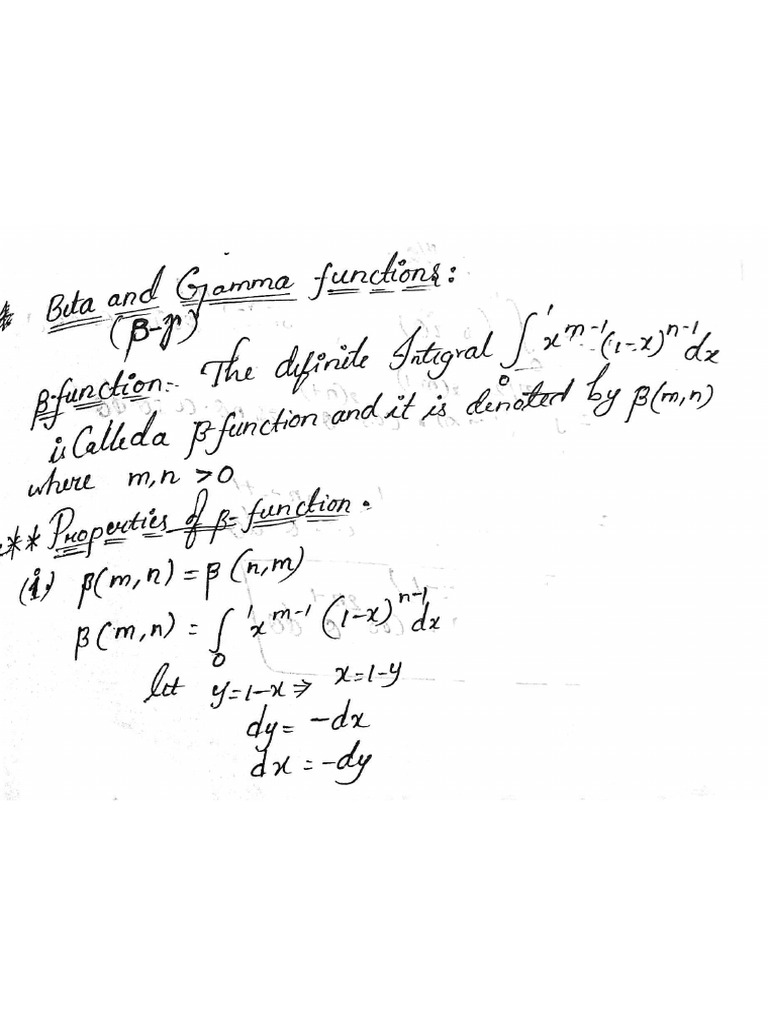 * Beta and Gamma functions:
(β-γ)
β-function:- The definite Integral ∫₀¹ x^{m-1} (1-x)^{n-1} dx
is Called a β-function and it is denoted by β(m,n)
where m,n >0
** Properties of β-function.
(i) β(m,n) = β(n,m)
β(m,n) = ∫₀¹ x^{m-1} (1-x)^{n-1} dx
let y=1-x ⇒ x=1-y
dy = -dx
dx = -dy